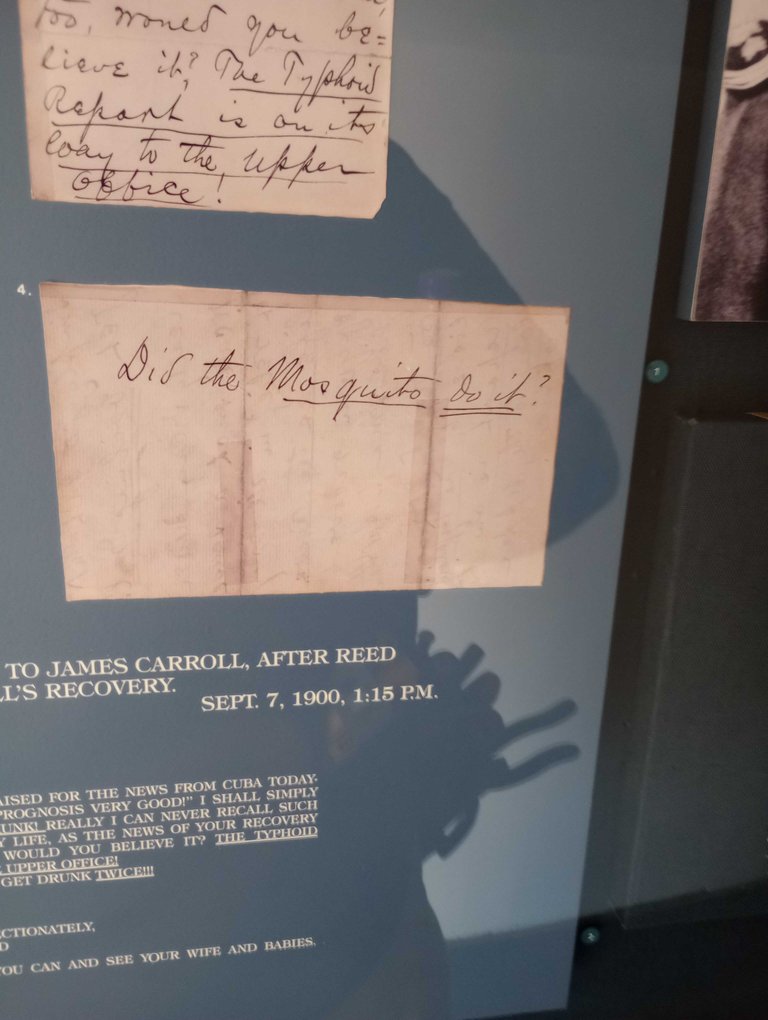 too, would you be=
lieve it? The Typhoid
Report is on its
way to the Upper
Office!
4.
Did the Mosquito do it?
TO JAMES CARROLL, AFTER REED
L'S RECOVERY.
SEPT. 7, 1900, 1:15 P.M.
AISED FOR THE NEWS FROM CUBA TODAY-
PROGNOSIS VERY GOOD!" I SHALL SIMPLY
UNK! REALLY I CAN NEVER RECALL SUCH
Y LIFE, AS THE NEWS OF YOUR RECOVERY
WOULD YOU BELIEVE IT? THE TYPHOID
E UPPER OFFICE!
GET DRUNK TWICE!!!
ECTIONATELY,
D
YOU CAN AND SEE YOUR WIFE AND BABIES.